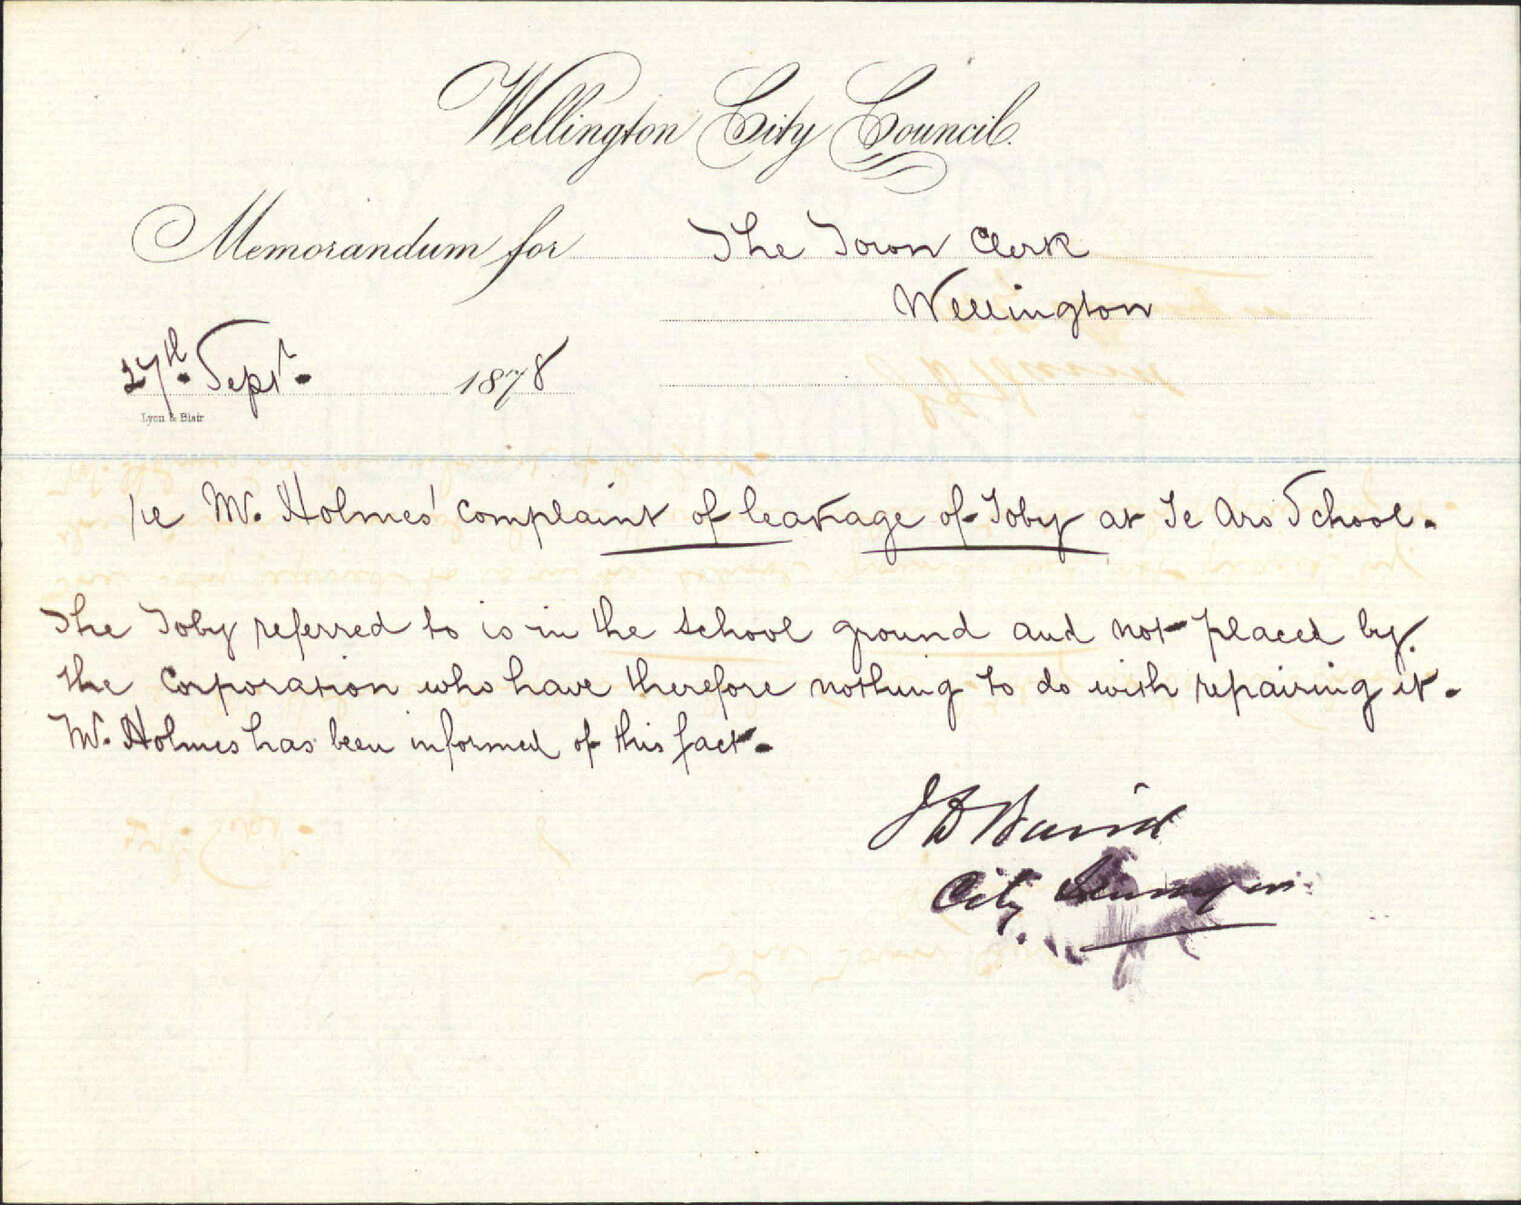 Wellington City Council.
Memorandum for The Town Clerk
Wellington
27th. Sept. 1878
Lyon & Blair
re Mr. Holmes' complaint of leakage of Toby at Te Aro School.
The Toby referred to is in the school ground and not placed by
the Corporation who have therefore nothing to do with repairing it.
Mr. Holmes has been informed of this fact.
J D Baird
City Surveyor